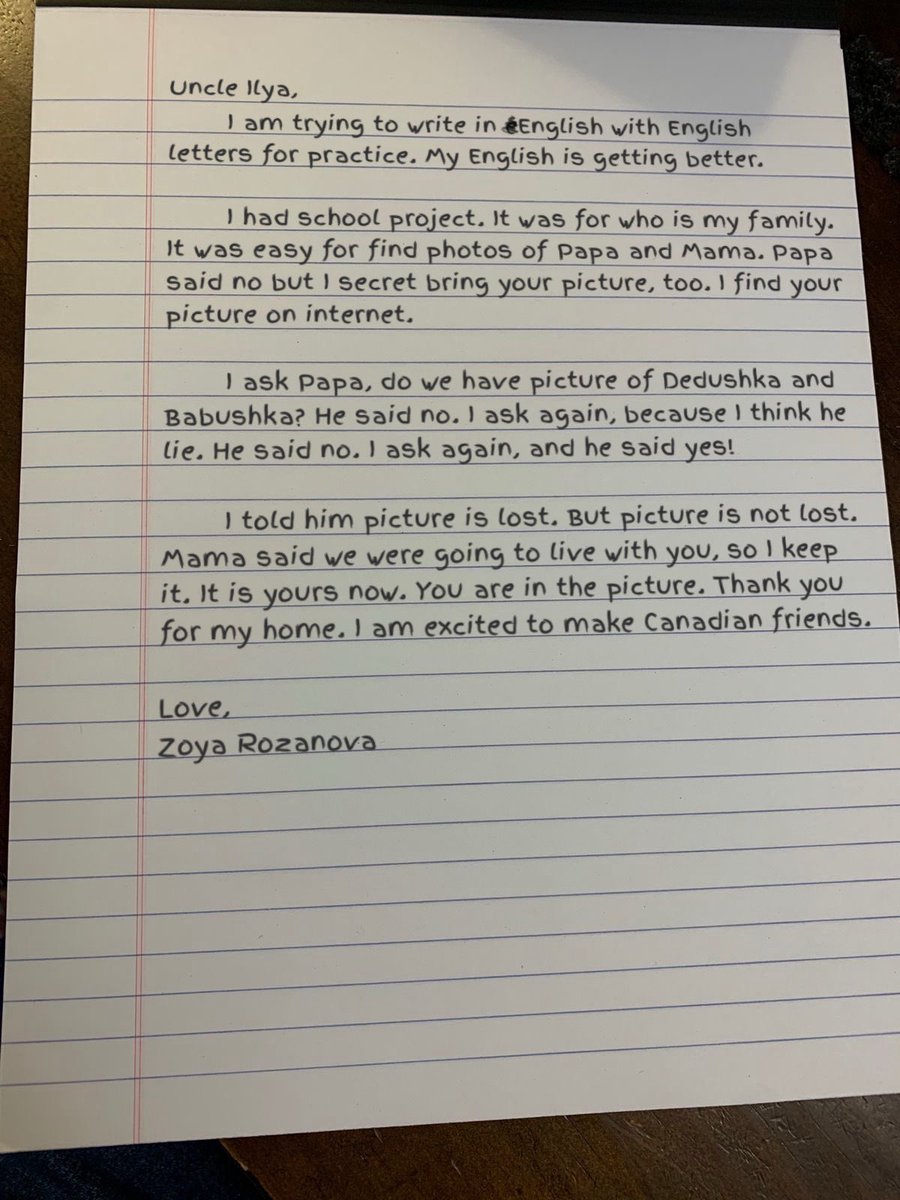 Uncle Ilya,
I am trying to write in English with English
letters for practice. My English is getting better.
I had school project. It was for who is my family.
It was easy for find photos of Papa and Mama. Papa
said no but I secret bring your picture, too. I find your
picture on internet.
I ask Papa, do we have picture of Dedushka and
Babushka? He said no. I ask again, because I think he
lie. He said no. I ask again, and he said yes!
I told him picture is lost. But picture is not lost.
Mama said we were going to live with you, so I keep
it. It is yours now. You are in the picture. Thank you
for my home. I am excited to make Canadian friends.
Love,
Zoya Rozanova